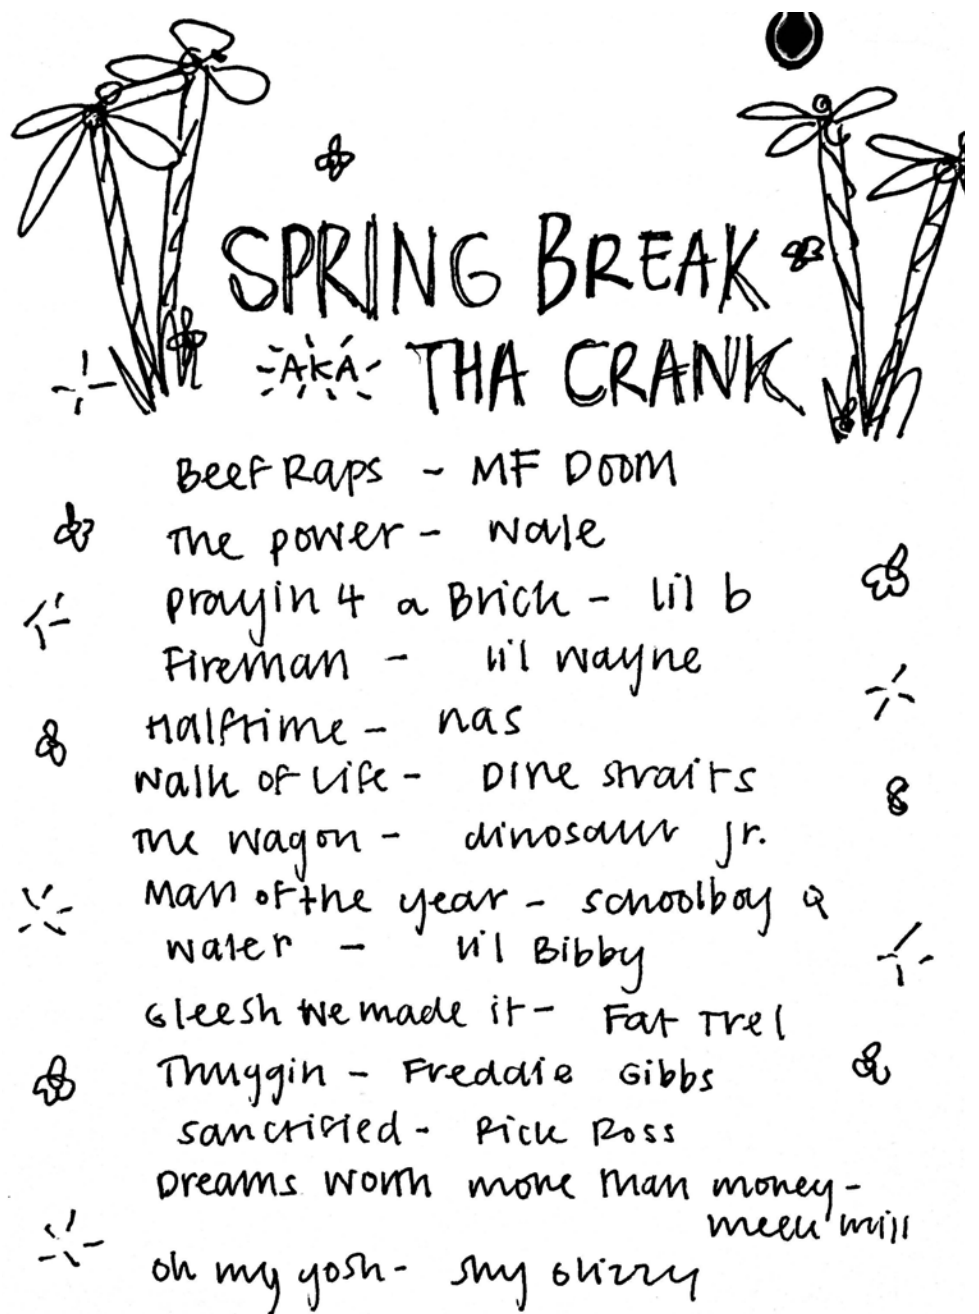 SPRING BREAK
AKA THA CRANK
Beef Raps - MF DOOM
The power - wale
prayin 4 a Brick - lil b
Fireman - lil wayne
Halftime - nas
walk of life - Dire straits
The wagon - dinosaur jr.
Man of the year - schoolboy Q
water - lil Bibby
Gleesh we made it - Fat Trel
Thuggin - Freddie Gibbs
sanctified - Rick Ross
Dreams worth more than money -
meek mill
oh my gosh - shy glizzy